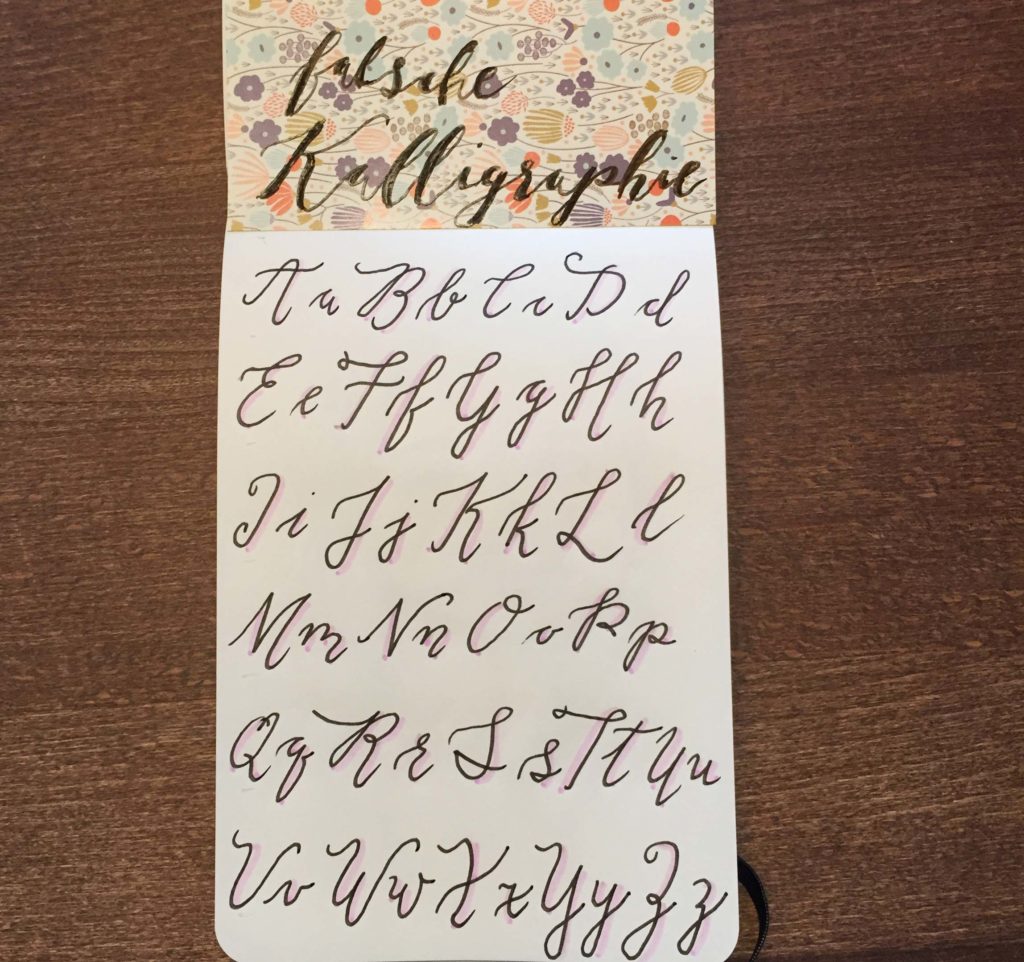 falsche
Kalligraphie
A a B b C c D d
E e F f G g H h
I i J j K k L l
M m N n O o P p
Q q R r S s T t U u
V v W w X x Y y Z z